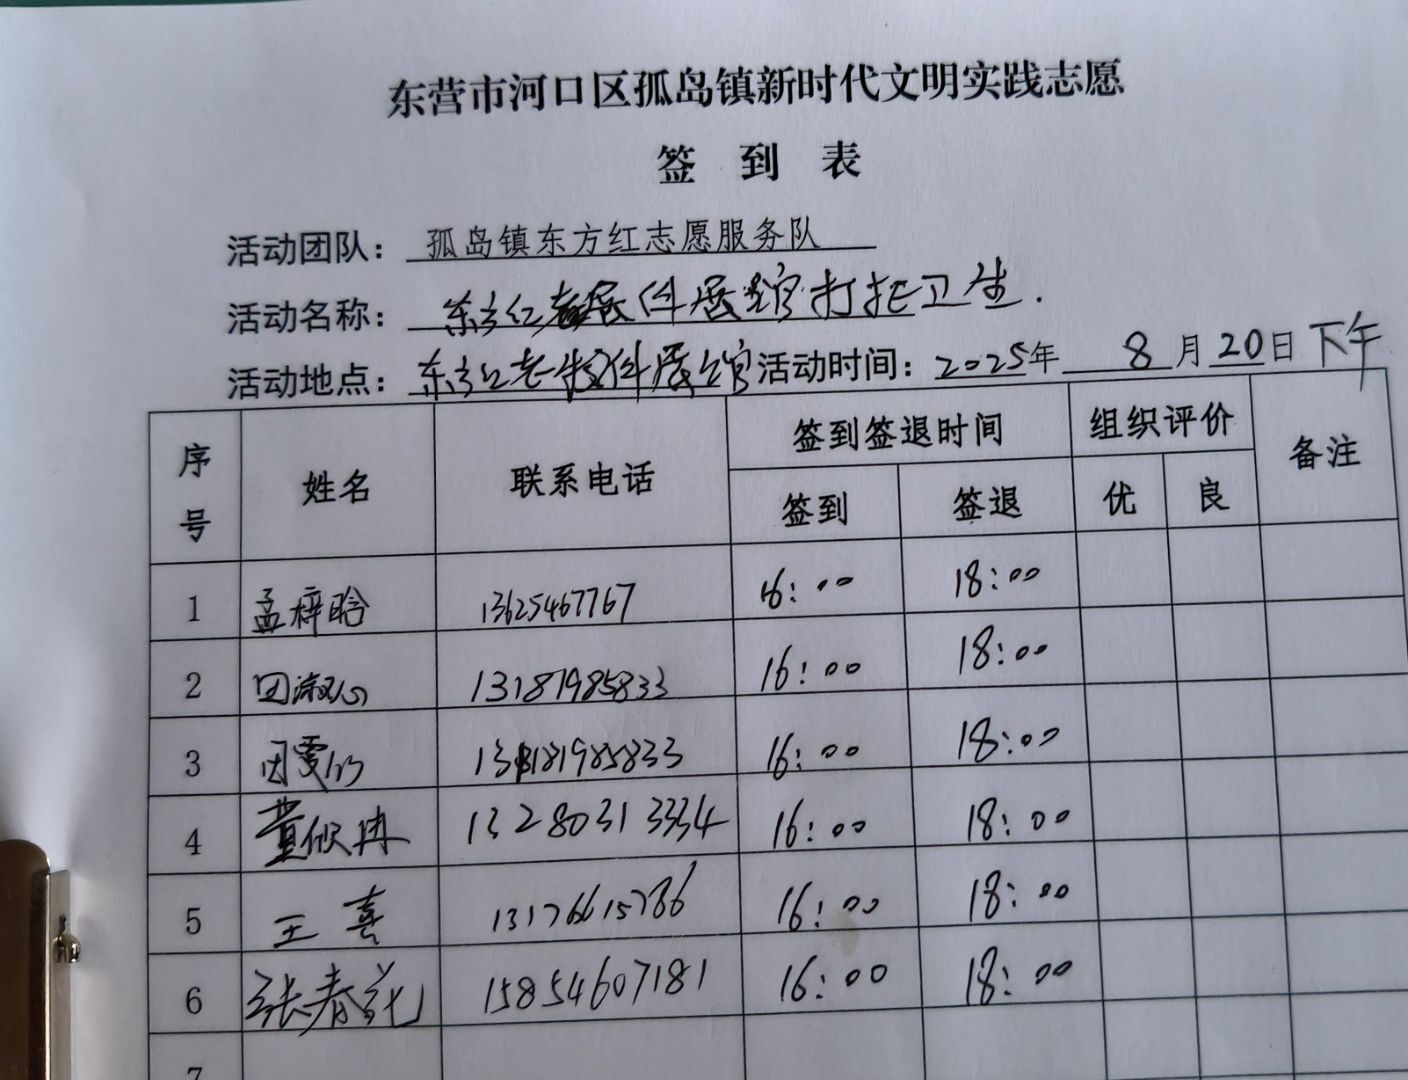 东营市河口区孤岛镇新时代文明实践志愿
签 到 表
活动团队： 孤岛镇东方红志愿服务队
活动名称： 东方红 展馆打扫卫生.
活动地点： 东方红老物件展馆 活动时间： 2025年 8月20日下午
序号 姓名 联系电话 签到签退时间 组织评价 备注
签到 签退 优 良
1 孟梓晗 13625467767 16:00 18:00
2 13181985833 16:00 18:00
3 13181985833 16:00 18:00
4 董 冉 13280313334 16:00 18:00
5 王喜 13176615786 16:00 18:00
6 张春花 15854607181 16:00 18:00
7